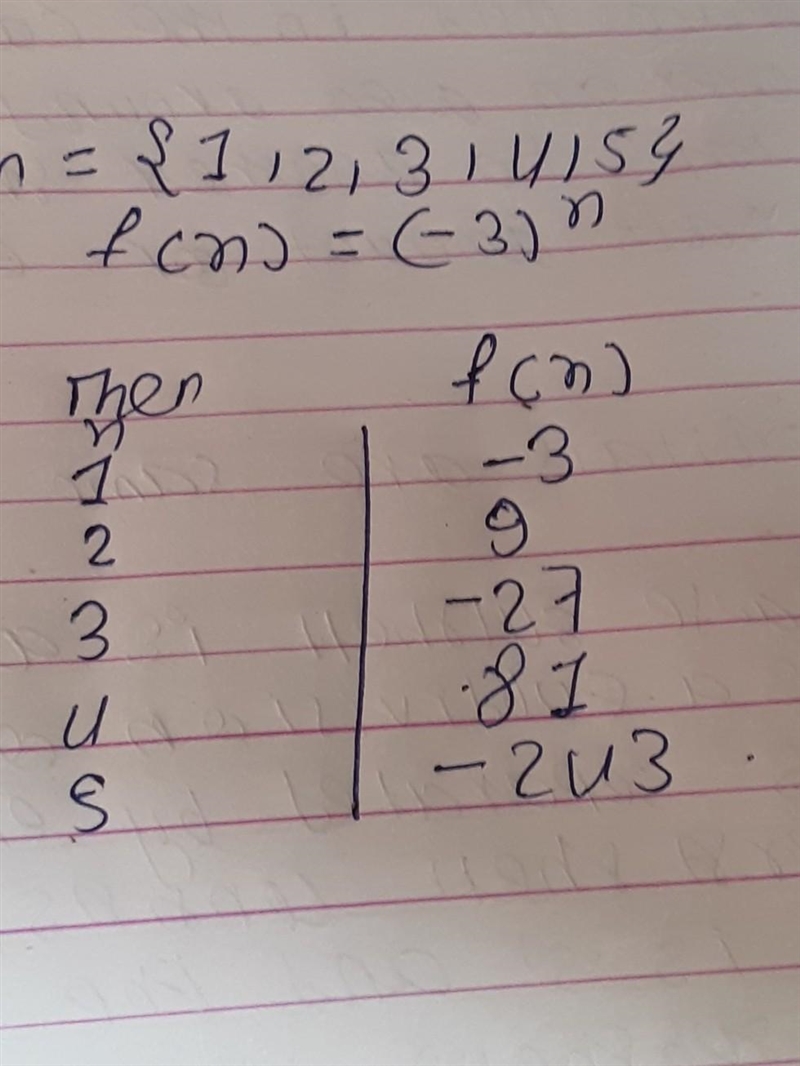 n = {1, 2, 3, 4, 5}
f(n) = (-3)^n
Then
n f(n)
1 -3
2 9
3 -27
4 81
5 -243